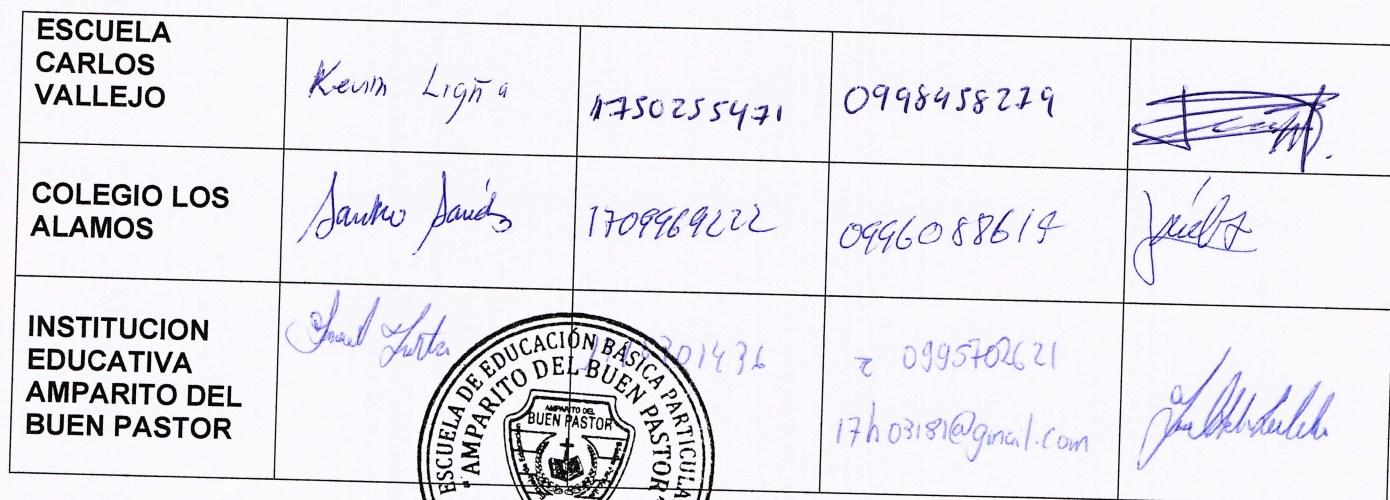 ESCUELA
CARLOS
VALLEJO
Kevin Ligña
1750255471
0998458279
COLEGIO LOS
ALAMOS
1709969222
0996088614
INSTITUCION
EDUCATIVA
AMPARITO DEL
BUEN PASTOR
0995702621
17h03181@gmail.com
ESCUELA DE EDUCACIÓN BÁSICA PARTICULA
"AMPARITO DEL BUEN PASTOR"
AMPARITO DEL
BUEN PASTOR